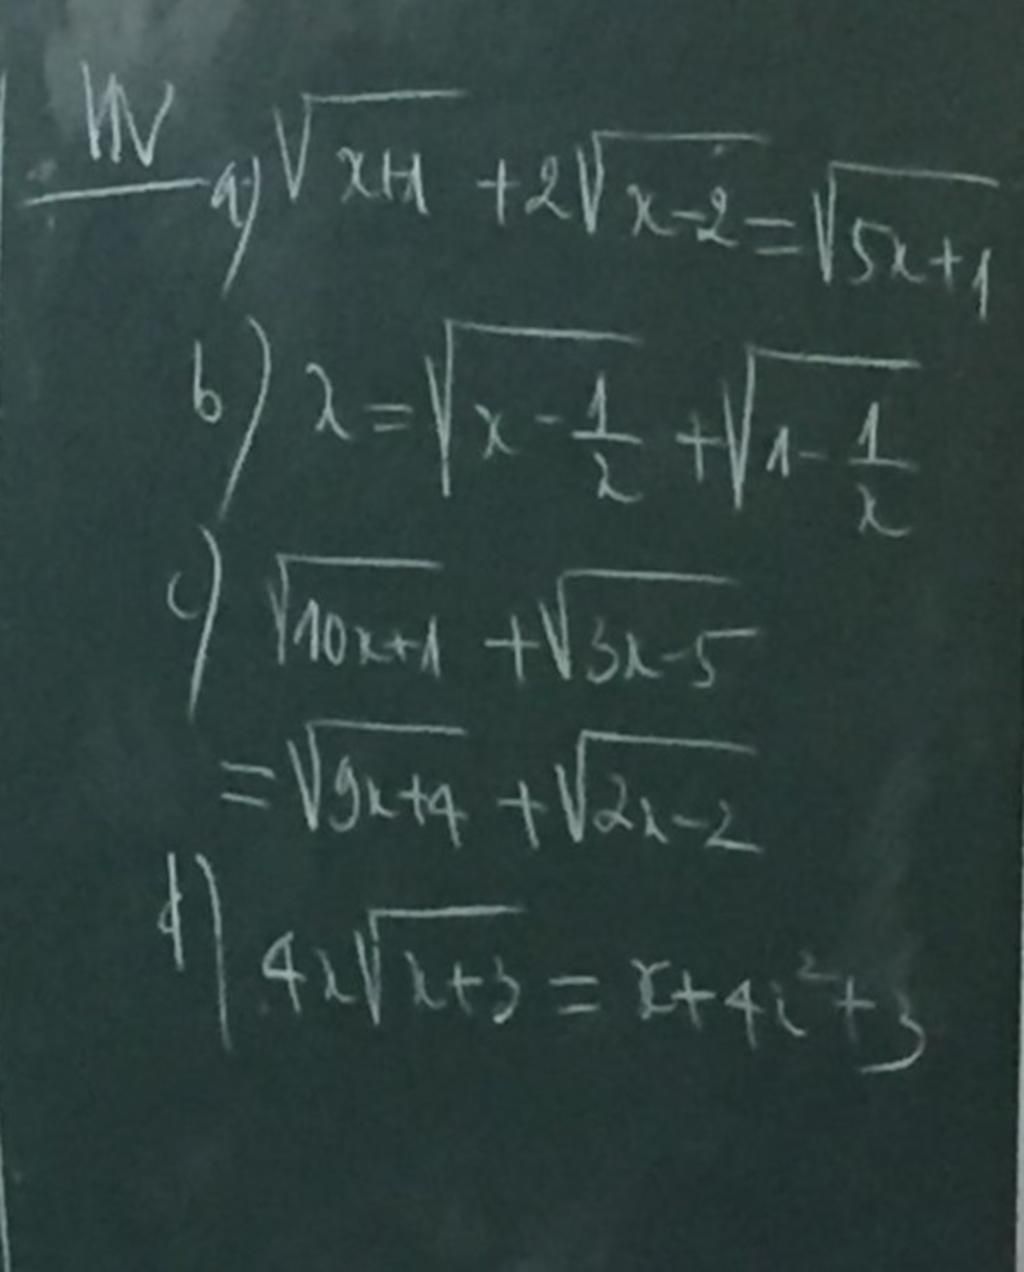 HW
a) √(x+1) + 2√(x-2) = √(5x+1)
b) x = √(x - 1/x) + √(1 - 1/x)
c) √(10x+1) + √(3x-5)
= √(9x+4) + √(2x-2)
d) 4x√(x+3) = x+4x²+3